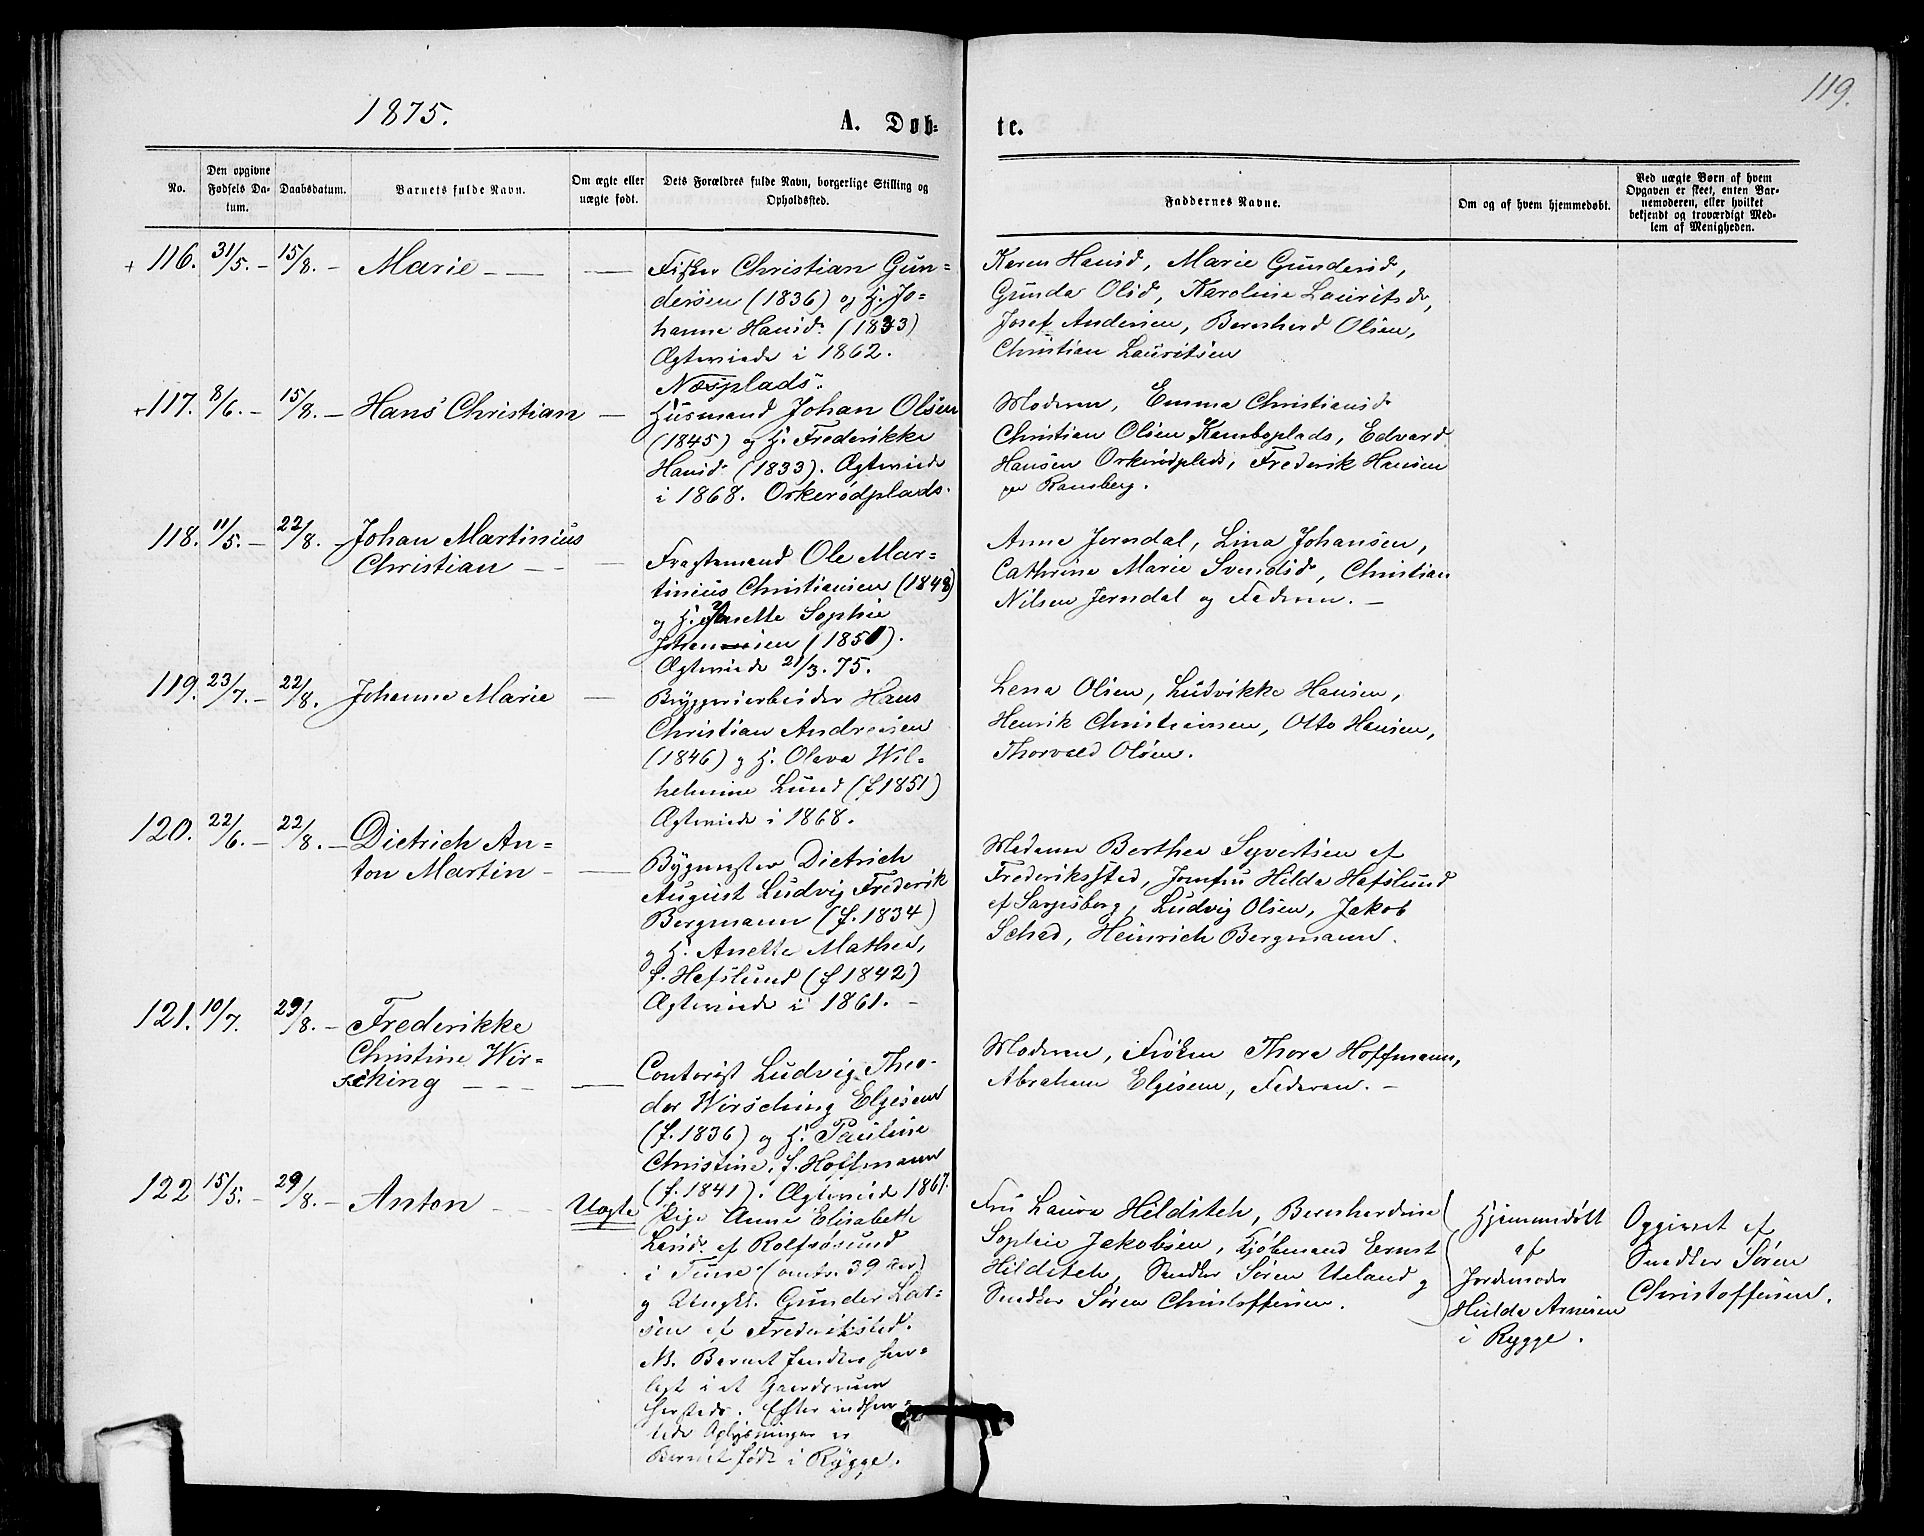 1875.
A. Døb-
te.
119.
No.
Den opgivne
Fødsels Da-
tum.
Daabsdatum.
Barnets fulde Navn.
Om ægte eller
uægte født.
Dets Forældres fulde Navn, borgerlige Stilling og
Opholdssted.
Faddernes Navne.
Om og af hvem hjemmedøbt.
Ved uægte Børn af hvem
Opgaven er skeet, enten Bar-
nemoderen, eller hvilket
bekjendt og troværdigt Med-
lem af Menigheden.
+ 116. 31/5. - 15/8. - Marie - — —
Fisker Christian Gun-
dersen (1836) og H. Jo-
hanne Hansdr. (1833)
Ægteviede i 1862.
Næsplads.
Karen Hansd., Marie Gundersd.,
Gunda Olsd., Karoline Lauritsdr.,
Josef Andersen, Bernhard Olsen,
Christian Lauritsen
+ 117. 8/6. - 15/8. - Hans Christian —
Husmand Johan Olsen
(1845) og H. Frederikke
Hansdr. (1833). Ægteviede
i 1868. Orkerødplads.
Moderen, Emma Christiansdr.
Christian Olsen Kamboplads, Edvard
Hansen Orkerødplads, Frederik Hansen
Ramberg.
118. 11/5. - 22/8. - Johan Martinius
Christian - - —
Fragtemand Ole Mar-
tinius Christiansen (1848)
og H. Anette Sophie
Johannesen (1851).
Ægteviede 21/3. 75.
Anne Jerndal, Lina Johansen,
Cathrine Marie Svendsdr., Christian
Nilsen Jerndal og Faderen. -
119. 23/7. - 22/8. Johanne Marie —
Bryggeriarbeider Hans
Christian Andresen
(1846) og H. Olava Wil-
helmine Lund (f. 1851)
Ægteviede i 1868.
Lena Olsen, Ludvikke Hansen,
Henrik Christiansen, Otto Hansen,
Thorvald Olsen.
120. 22/6. - 22/8. - Dietrich An-
ton Martin - —
Bygmester Dietrich
August Ludvig Frederik
Bergmann (f. 1834)
og H. Anette Mathea,
f. Hafslund (f 1842)
Ægteviede i 1861. -
Madame Berthea Syvertsen af
Frederiksstad, Jomfru Hilda Hafslund
af Sarpsborg, Ludvig Olsen, Jakob
Schad, Heinrich Bergmann.
121. 10/7. 29/8. - Frederikke
Christine Wir-
sching - - - —
Contorist Ludvig Theo-
dor Wirsching Elgesem
(f. 1836) og H. Pauline
Christine, f. Hoffmann
(f. 1841). Ægteviede 1867.
Moderen, Frøken Thora Hoffmann,
Abraham Elgesem, Faderen. -
122 15/5. - 29/8. - Anton - - - Uægte
Pige Anne Elisabeth
Larsdr. af Rolfsøsund
i Tune (omtr. 39 Aar)
og Ungk. Gunder Lar-
sen af Frederiksstad.
NB. Barnet fandtes hen-
lagt i et Gaardsrum
hersteds. Efter indhen-
tede Oplysninger er
Barnet født i Rygge.
Fru Laura Hilditch, Bernhardine
Sophie Jakobsen, Kjøbmand Ernst
Hilditch, Snedker Søren Ueland og
Snedker Søren Christoffersen.
Hjemmedøbt
af
Jordemoder
Hulda Arnesen
i Rygge.
Opgivet af
Snedker Søren
Christoffersen.